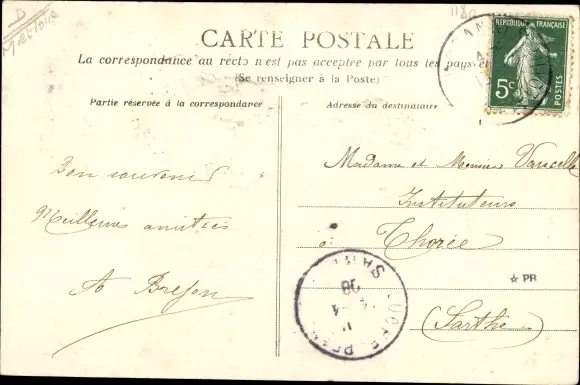 CARTE POSTALE
La correspondance au recto n'est pas acceptée par tous les pays
(Se renseigner à la Poste)
RÉPUBLIQUE FRANÇAISE
5c
POSTES
Partie réservée à la correspondance
Adresse du destinataire
Bon souvenir
Meilleures amitiés
Madame et Monsieur
Instituteurs
à Thorée
(Sarthe)
☆ PR
SARTHE
08